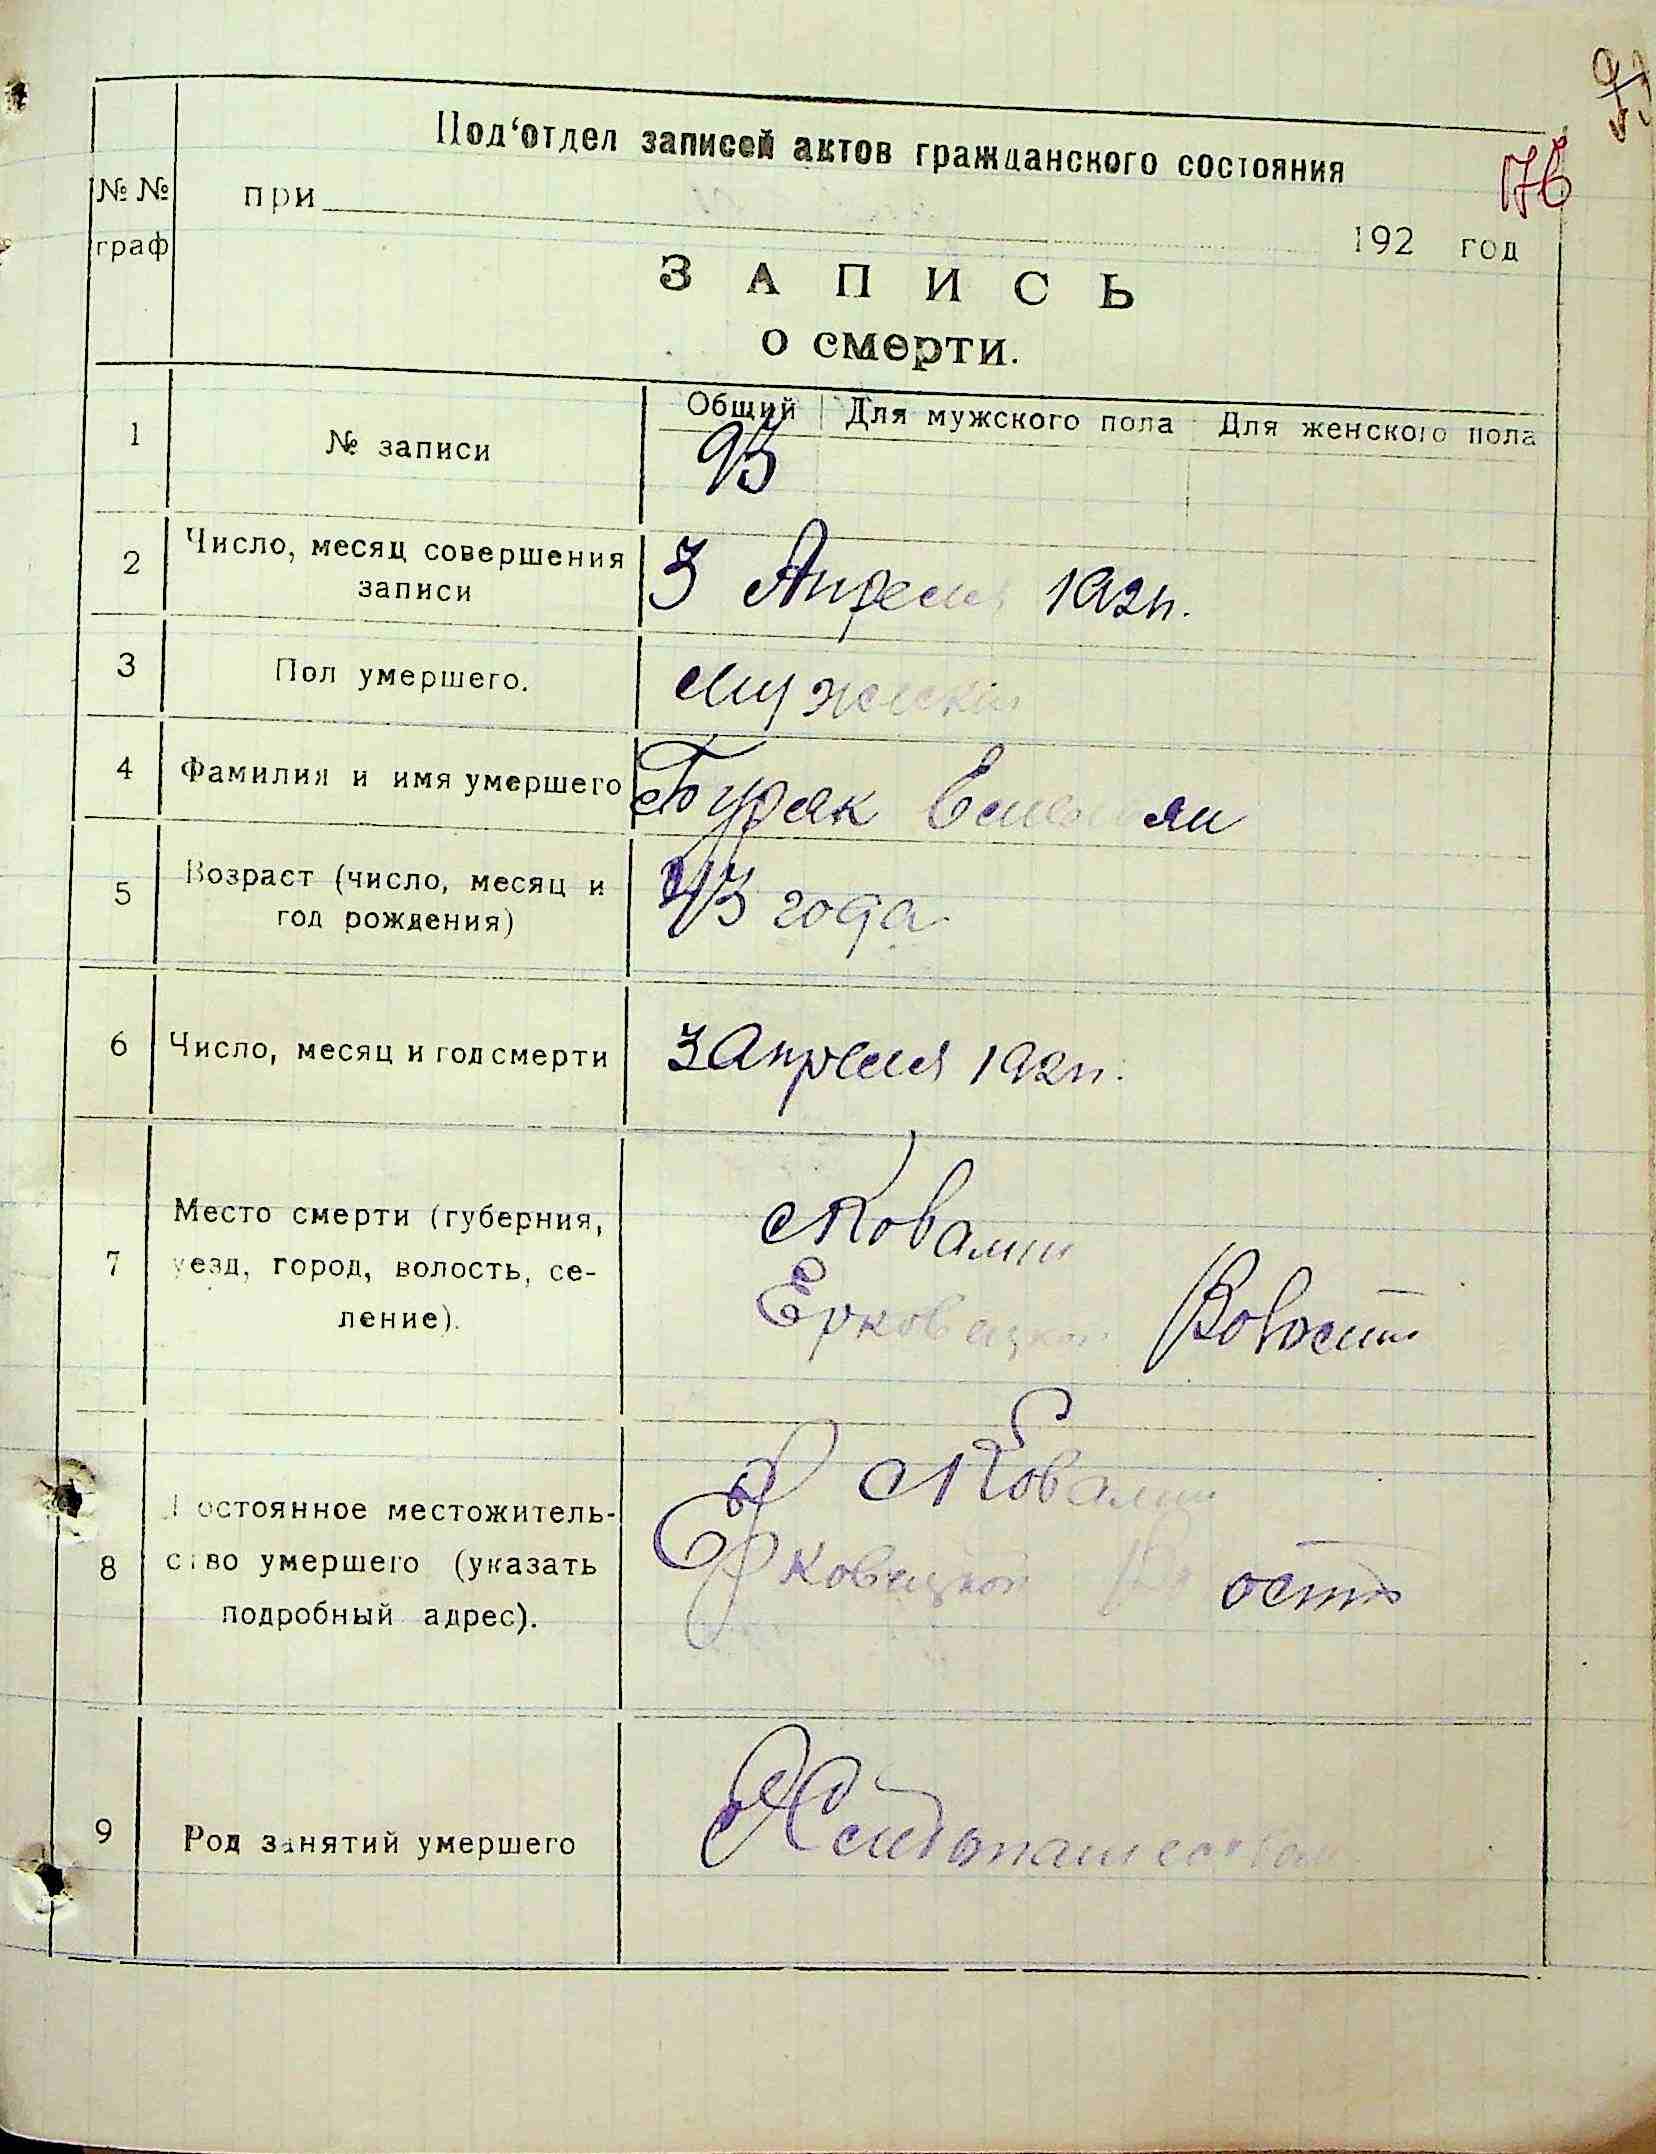 93
176
Под'отдел записей актов гражданского состояния
№ №
граф
при 192 год
ЗАПИСЬ
о смерти.
1 № записи Общий Для мужского пола Для женского пола
93
2 Число, месяц совершения
записи
3 Апреля 192
3 Пол умершего. мужски
4 Фамилия и имя умершего Буряк Емельян
5 Возраст (число, месяц и
год рождения)
43 года
6 Число, месяц и год смерти 3 Апреля 192
7 Место смерти (губерния,
уезд, город, волость, се-
ление).
Ковалин
Ерковецкой Волости
8 Постоянное местожитель-
ство умершего (указать
подробный адрес).
Ковалин
Ерковецкой
9 Род занятий умершего